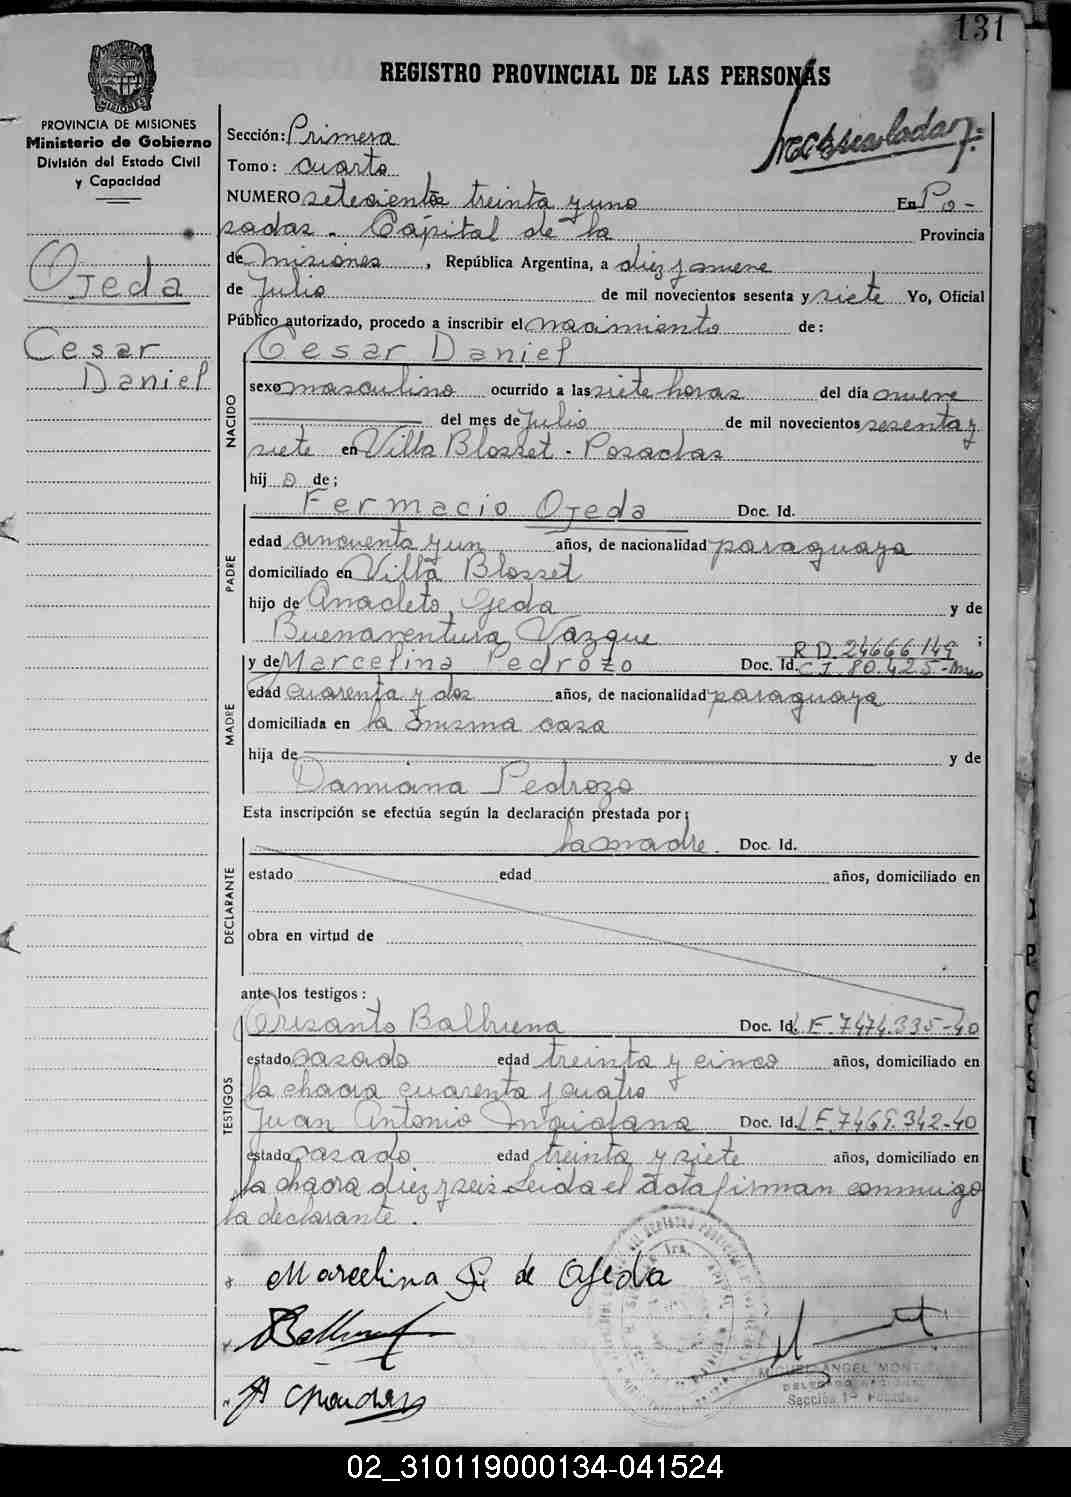 131
REGISTRO PROVINCIAL DE LAS PERSONAS
PROVINCIA DE MISIONES
Ministerio de Gobierno
División del Estado Civil
y Capacidad
Ojeda
Cesar
Daniel
Sección: Primera
Tomo: cuarto
NUMERO setecientos treinta y uno En Po-
sadas - Capital de la Provincia
de Misiones, República Argentina, a diez y nueve
de Julio de mil novecientos sesenta y siete Yo, Oficial
Público autorizado, procedo a inscribir el nacimiento de:
NACIDO
Cesar Daniel
sexo masculino ocurrido a las siete horas del día nueve
del mes de Julio de mil novecientos sesenta y
siete en Villa Blosset - Posadas
hij o de;
PADRE
Fermacio Ojeda Doc. Id.
edad cincuenta y un años, de nacionalidad paraguaya
domiciliado en Villa Blosset
hijo de Anacleto Ojeda y de
Buenaventura Vazque ;
R.D. 24666149
MADRE
y de Marcelina Pedrozo Doc. Id. C.I. 80.425-Mnes
edad cuarenta y dos años, de nacionalidad paraguaya
domiciliada en la misma casa
hija de y de
Damiana Pedrozo
Esta inscripción se efectúa según la declaración prestada por;
la madre. Doc. Id.
DECLARANTE
estado edad años, domiciliado en
obra en virtud de
ante los testigos:
TESTIGOS
Crisanto Balbuena Doc. Id. L.E. 7474.335-40
estado casado edad treinta y cinco años, domiciliado en
la chacra cuarenta y cuatro
Juan Antonio Doc. Id. L.E. 7469.342-40
estado casado edad treinta y siete años, domiciliado en
la chacra diez y seis Leida el acta firman conmigo
la declarante.
Marcelina P. de Ojeda
MIGUEL ANGEL
Sección 1ª Posadas
02_310119000134-041524